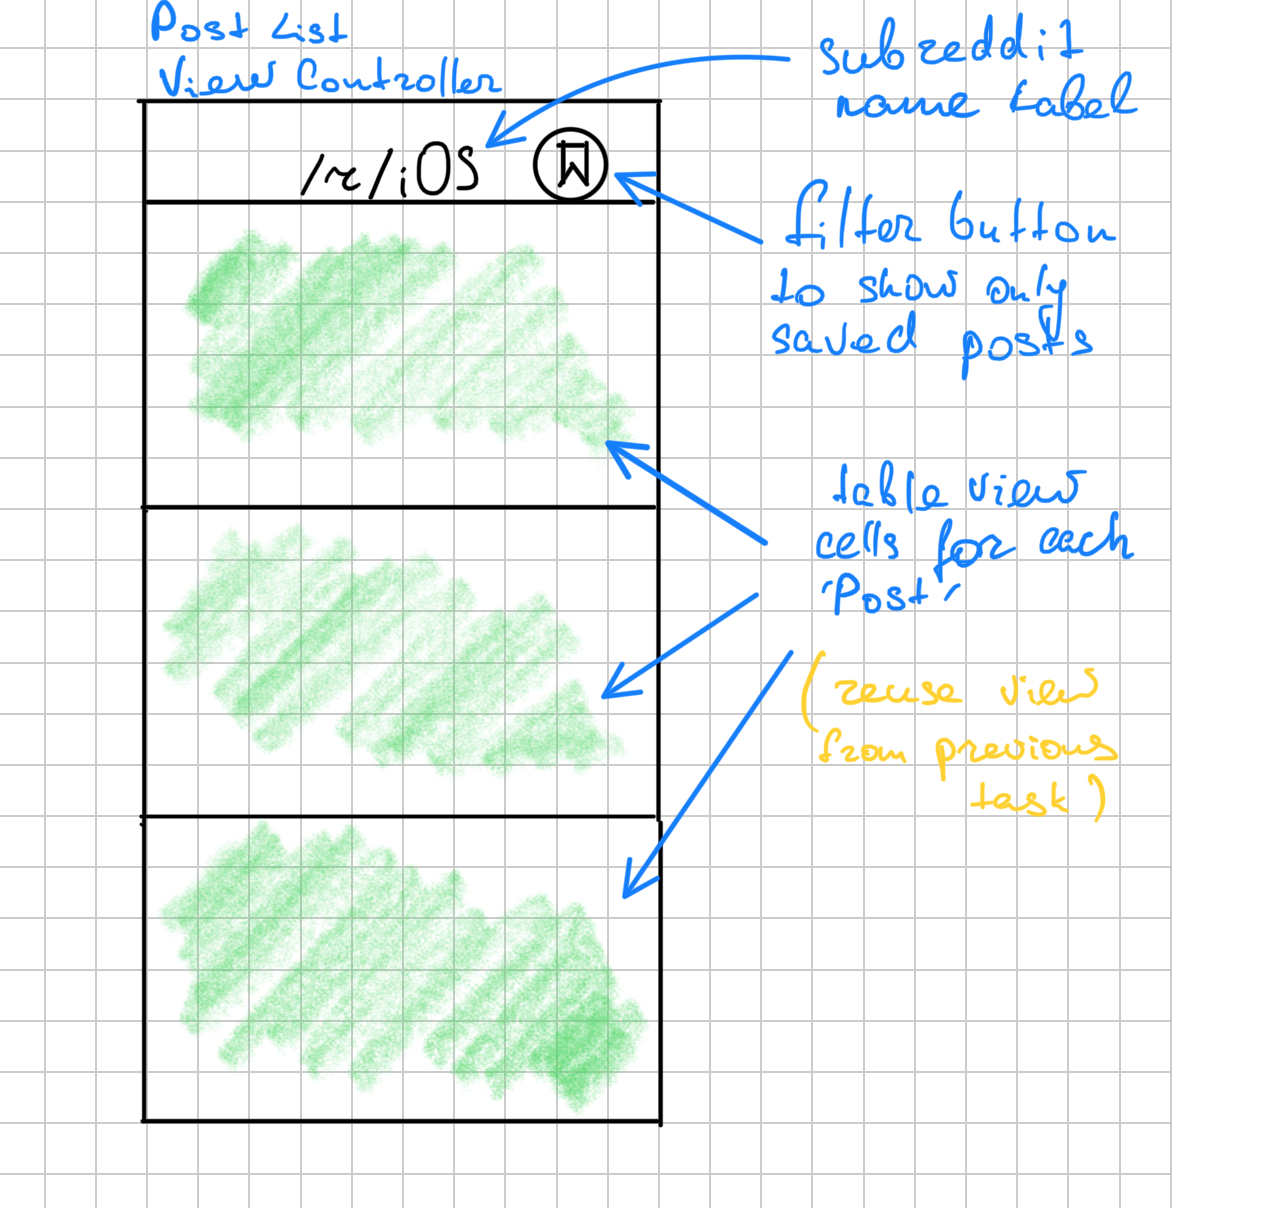 Post List
View Controller
subreddit
name label
/r/iOS
filter button
to show only
saved posts
table view
cells for each
'Post'
(reuse view
from previous
task)